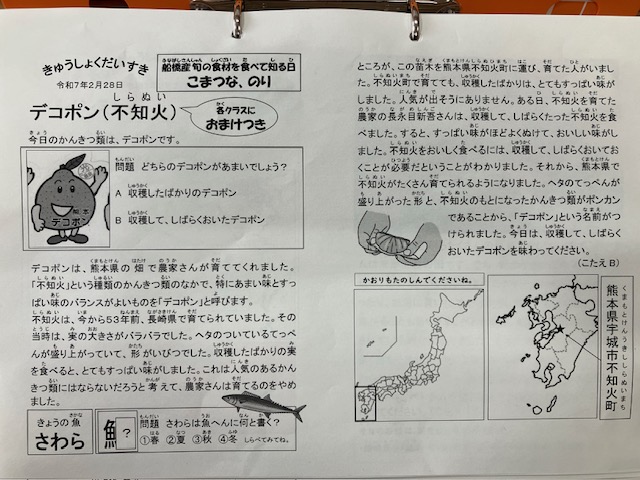 きゅうしょくだいすき
令和7年2月28日
船橋産旬の食材を食べて知る日
こまつな、のり
デコポン(不知火)
各クラスに
おまけつき
今日のかんきつ類は、デコポンです。
熊本
デコポン
問題 どちらのデコポンがあまいでしょう?
A 収穫したばかりのデコポン
B 収穫して、しばらくおいたデコポン
デコポンは、熊本県の畑で農家さんが育ててくれました。
「不知火」という種類のかんきつ類のなかで、特にあまい味とすっ
ぱい味のバランスがよいものを「デコポン」と呼びます。
不知火は、今から53年前、長崎県で育てられていました。その
当時は、実の大きさがバラバラでした。ヘタのついているてっぺ
んが盛り上がっていて、形がいびつでした。収穫したばかりの実
を食べると、とてもすっぱい味がしました。これは人気のあるかん
きつ類にはならないだろうと考えて、農家さんは育てるのをやめ
ました。
きょうの魚
さわら
魚?
問題 さわらは魚へんに何と書く?
①春 ②夏 ③秋 ④冬 しらべてみてね。
ところが、この苗木を熊本県不知火町に運び、育てた人がいまし
た。不知火町で育てても、収穫したばかりは、とてもすっぱい味が
しました。人気が出そうにありません。ある日、不知火を育てた
農家の長永目新吾さんは、収穫して、しばらくたった不知火を食
べました。すると、すっぱい味がほどよくぬけて、おいしい味がし
ました。不知火をおいしく食べるには、収穫して、しばらくおいてお
くことが必要だということがわかりました。それから、熊本県で
不知火がたくさん育てられるようになりました。ヘタのてっぺんが
盛り上がった形と、不知火のもとになったかんきつ類がポンカン
であることから、「デコポン」という名前がつ
けられました。今日は、収穫して、しばらく
おいたデコポンを味わってください。
(こたえ B)
かおりもたのしんでくださいね。
熊本県宇城市不知火町